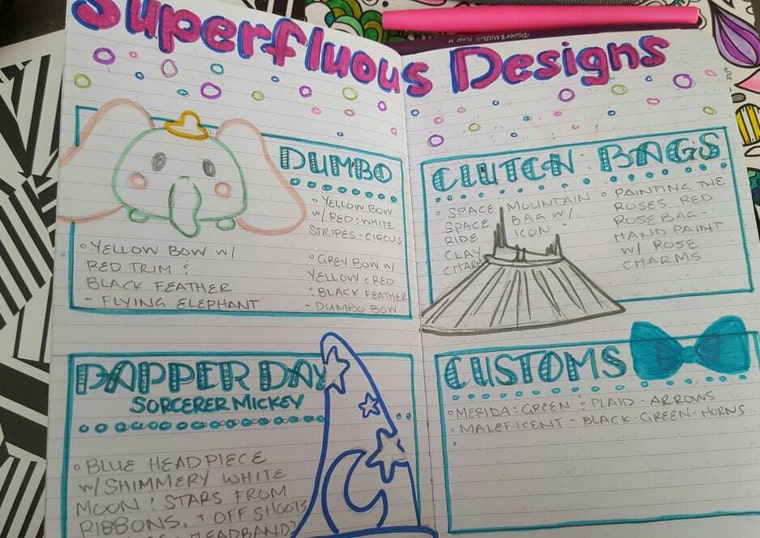 Superfluous Designs
DUMBO
○ YELLOW BOW
w/ RED & WHITE
STRIPES - CIRCUS
○ YELLOW BOW W/
RED TRIM &
BLACK FEATHER
- FLYING ELEPHANT
○ GREY BOW W/
YELLOW & RED
& BLACK FEATHER
- DUMBO BOW
CLUTCH BAGS
○ SPACE MOUNTAIN
SPACE BAG W/
RIDE ICON
CLAY
CHARM
○ PAINTING THE
ROSES RED
ROSE BAG -
HAND PAINT
W/ ROSE
CHARMS
DAPPER DAY
SORCERER MICKEY
○ BLUE HEADPIECE
w/ SHIMMERY WHITE
MOON & STARS FROM
RIBBONS, + OFF SHOOTS
HEADBAND?
CUSTOMS
○ MERIDA: GREEN & PLAID - ARROWS
○ MALEFICENT - BLACK - GREEN - HORNS